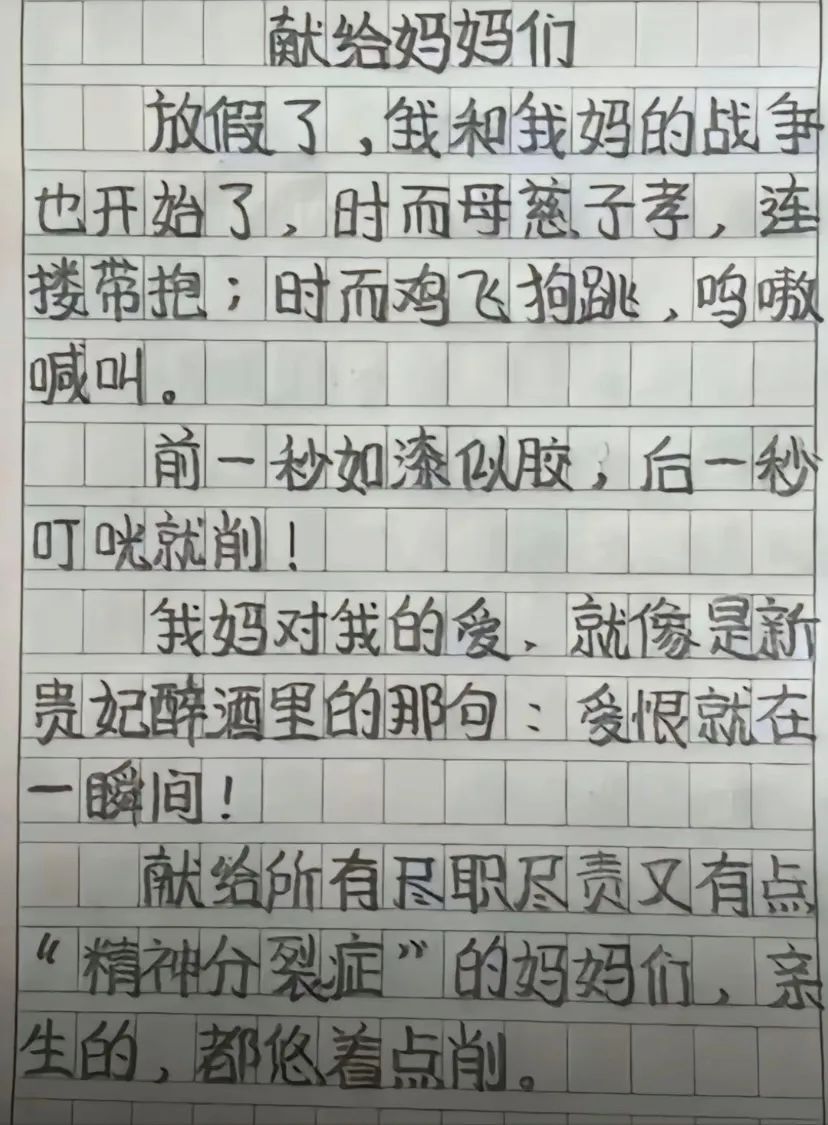 献给妈妈们
放假了，我和我妈的战争
也开始了，时而母慈子孝，连
搂带抱；时而鸡飞狗跳，呜嗷
喊叫。
前一秒如漆似胶，后一秒
叮咣就削！
我妈对我的爱，就像是新
贵妃醉酒里的那句：爱恨就在
一瞬间！
献给所有尽职尽责又有点
“精神分裂症”的妈妈们，亲
生的，都悠着点削。